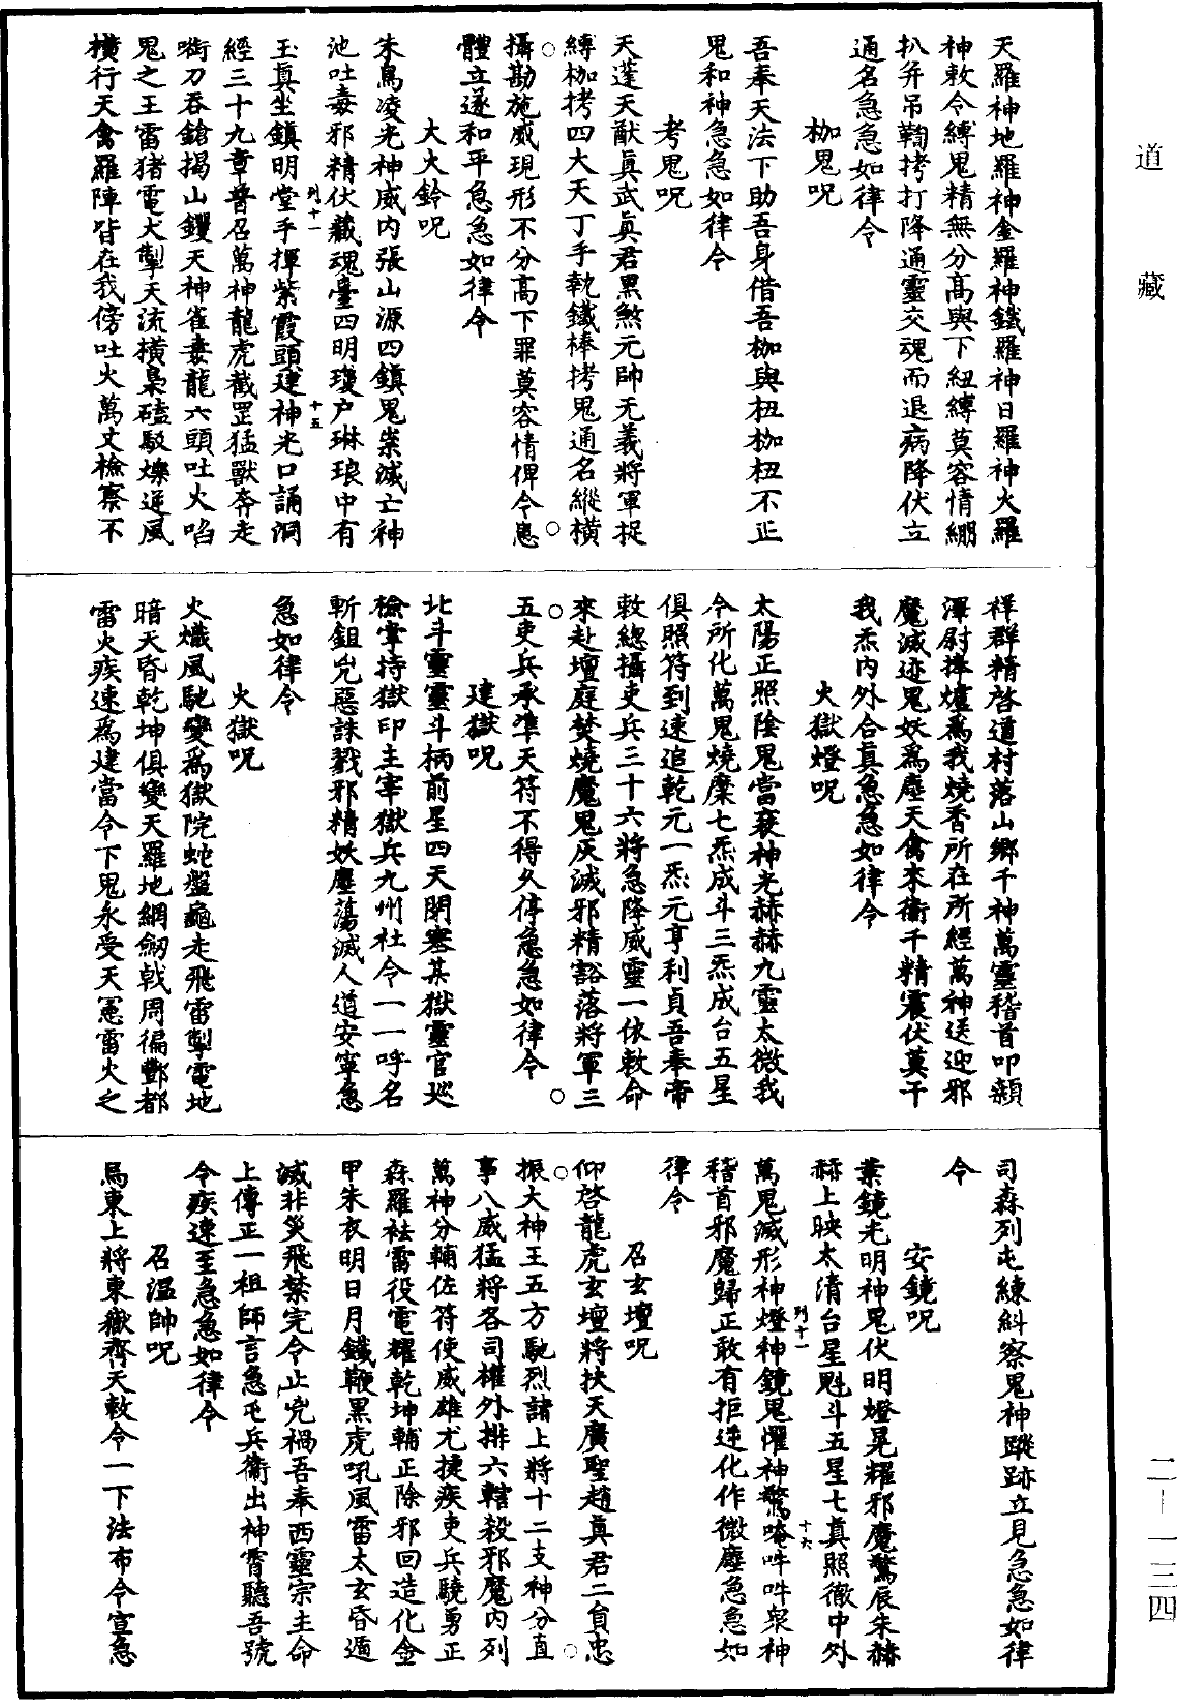 道藏
天羅神地羅神金羅神鐵羅神日羅神火羅
神敕令縛鬼精無分高與下紐縛莫容情綳
扒弁吊鞫拷打降通靈交魂而退病降伏立
通名急急如律令
枷鬼呪
吾奉天法下助吾身借吾枷與杻枷杻不正
鬼和神急急如律令
考鬼呪
天蓬天猷眞武眞君黑煞元帥无義將軍捉
縛枷拷四大天丁手執鐵棒拷鬼通名縱橫
攝勘施威現形不分高下罪莫容情俾令患
體立遂和平急急如律令
大火鈴呪
朱鳥凌光神威内張山源四鎮鬼祟滅亡神
池吐毒邪精伏藏魂臺四明瓊户琳琅中有
列十一
十五
玉眞坐鎮明堂手揮紫霞頭建神光口誦洞
經三十九章普召萬神龍虎截罡猛獸奔走
啣刀吞鎗揭山钁天神雀毒龍六頭吐火啗
鬼之王雷猪電犬掣天流橫梟磕駁爍逆風
橫行天禽羅陣皆在我傍吐火萬丈檢察不
祥群精啓道村落山鄉千神萬靈稽首叩顙
澤尉捧爐爲我燒香所在所經萬神送迎邪
魔滅迹鬼妖爲塵天禽來衛千精震伏莫干
我炁内外合真急急如律令
火獄燈呪
太陽正照陰鬼當衰神光赫赫九靈太微我
今所化萬鬼燒糜七炁成斗三炁成台五星
俱照符到速追乾元一炁元亨利貞吾奉帝
敕總攝吏兵三十六將急降威靈一依敕命
來赴壇庭焚燒魔鬼灰滅邪精豁落將軍三
五吏兵承準天符不得久停急急如律令
建獄呪
北斗靈靈斗柄前星四天閉塞某獄靈官巡
檢掌持獄印主宰獄兵九州社令一一呼名
斬鉏兇惡誅戮邪精妖塵蕩滅人道安寧急
急如律令
火獄呪
火熾風馳變爲獄院蛇盤龜走飛雷掣電地
暗天昏乾坤俱變天羅地網劒戟周徧酆都
雷火疾速爲建當令下鬼永受天憲雷火之
司森列屯練糾察鬼神蹤跡立見急急如律
令
安鏡呪
業鏡光明神鬼伏明燈晃耀邪魔驚辰朱赫
赫上映太清台星魁斗五星七真照徹中外
列十一
十六
萬鬼滅形神燈神鏡鬼懼神驚唵吽吽衆神
稽首邪魔歸正敢有拒逆化作微塵急急如
律令
召玄壇呪
仰啓龍虎玄壇將扶天廣聖趙真君二負忠
振大神王五方馳烈諸上將十二支神分直
事八威猛將各司權外排六轄殺邪魔内列
萬神分輔佐符使威雄尤捷疾吏兵驍勇正
森羅祛雷役電耀乾坤輔正除邪回造化金
甲朱衣明日月鐵鞭黑虎吼風雷太玄昏遁
滅非災飛禁完令止兇禍吾奉西靈宗主命
上傳正一祖師言急屯兵衛出神霄聽吾號
令疾速至急急如律令
召溫帥呪
烏東上將東嶽齊天敕令一下法布令宣急
二一一三四